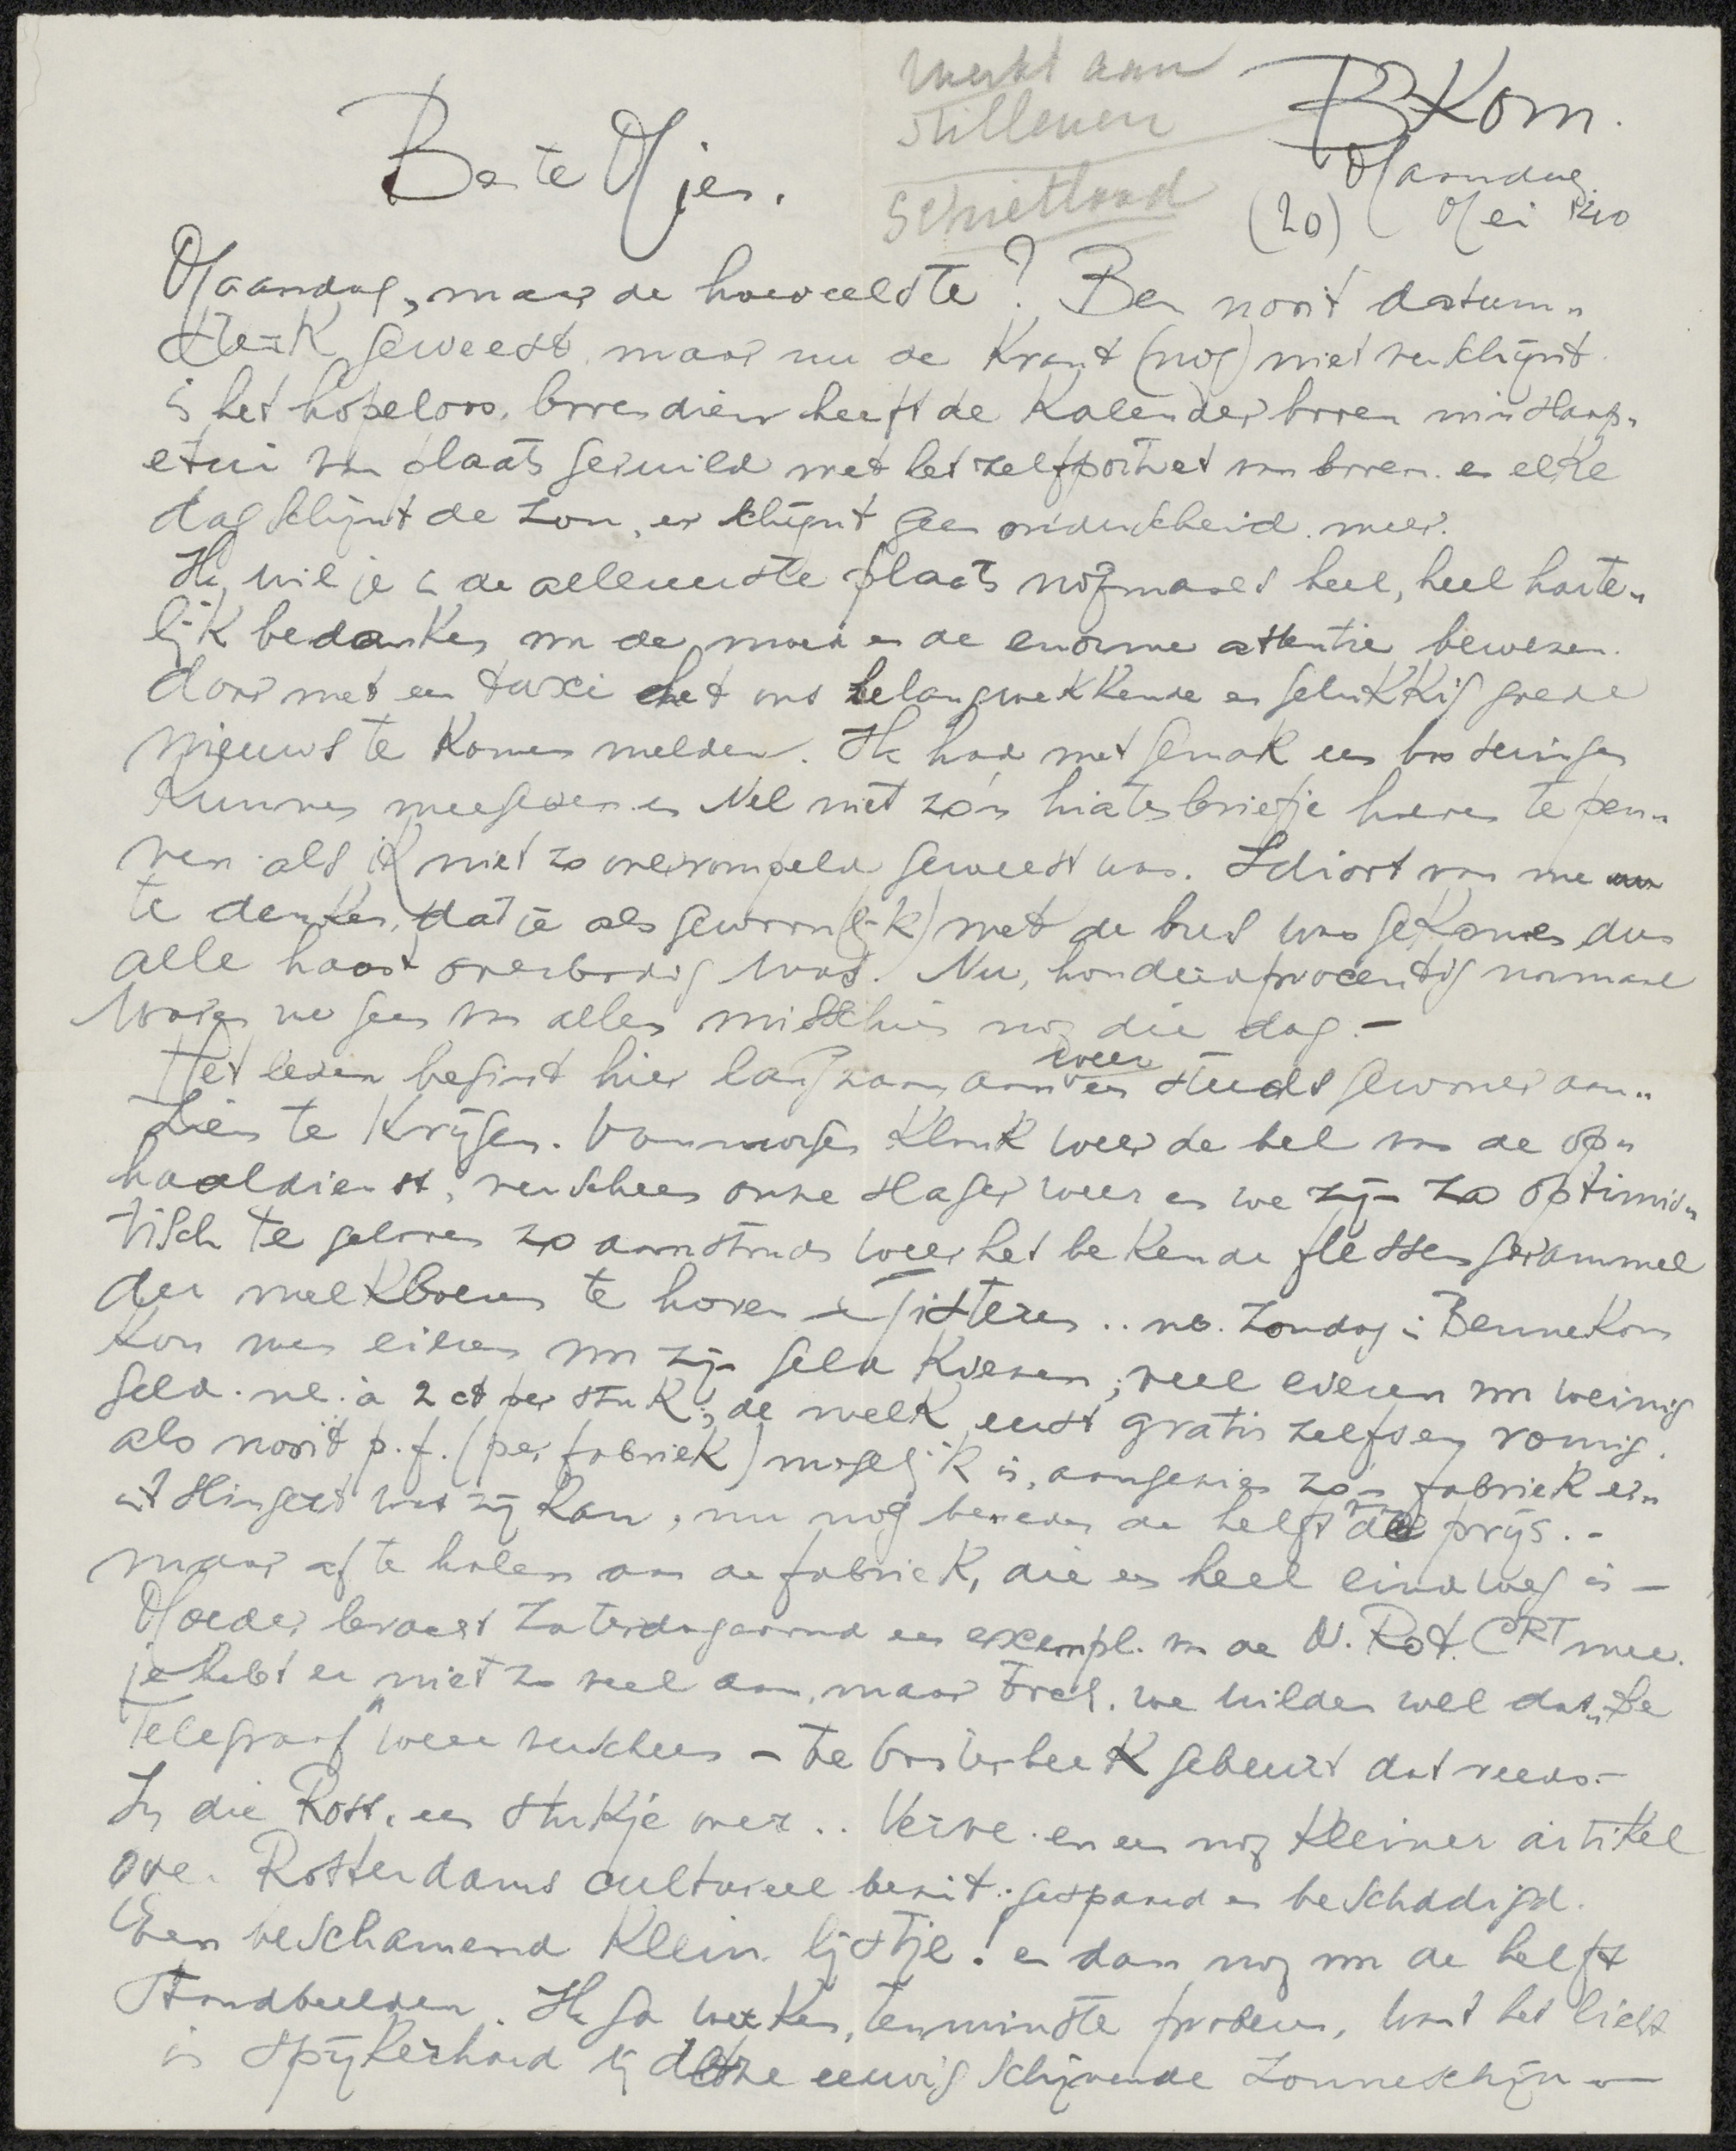 werkt aan
stilleven
Schietlood
BKom.
Maandag.
(20) Mei 1940
Beste Mies.
Maandag, maar de hoeveelste? Ben nooit datum-
sterk geweest maar nu de Krant (nog) niet verschijnt
is het hopeloos. Bovendien heeft de Kalender boven mijn slaap-
etui van plaats geruild met het zelfportret van boven. en elke
dag schijnt de zon, er schijnt geen onderscheid meer.
Ik wil je in de allereerste plaats nogmaals heel, heel harte-
lijk bedanken om de moed en de enorme attentie bewezen.
door met een taxi het ons belangwekkende en gelukkig goede
nieuws te Komen melden. Ik had met gemak een bos seringen
Kunnen meegeven en Nel niet zo'n briefje hoeven te pen-
nen als ik niet zo overrompeld geweest was. Idioot van me
te denken, dat je als gewoon(lijk) met de bus was geKomen dus
alle haast overbodig was. Nu, honderdprocentig normaal
waren we geen van allen misschien nog die dag. -
Het leven begint hier langzaam aan weer een steeds gewoner aan-
zien te Krijgen. Vanmorgen Klonk weer de bel van de op-
haaldienst, verscheen onze slager weer en we zijn zo optimis-
tisch te geloven zo aanstonds weer het beKende flessengerammel
der melkboeren te horen en gisteren .. nb. Zondag in BenneKom
Kon men eieren om zijn geld Kiezen; veel eieren om weinig
geld. nl. à 2 ct per stuK; de melK eerst gratis zelfs en romig.
als nooit p.f. (per fabriek) mogelijK is, aangezien zo'n fabriek er-
uit slingert wat zij Kan, nu nog beneden de helft van de prijs. -
maar af te halen aan de fabrieK, die een heel eind weg is -
Moeder bracht Zaterdagavond een exempl. van de N. Rot. CRT mee.
je hebt er niet zo veel aan, maar we wilden wel dat „De
Telegraaf" weer verscheen - te OosterbeeK gebeurt dat reeds. -
In die Rott. een stukje over .. Verve. en een nog Kleiner artiKel
over Rotterdams cultureel bezit: gespaard en beschadigd.
Een beschamend Klein lijstje! en dan nog om de helft
standbeelden. Ik ga werKen, tenminste proberen, want het licht
is spijKerhard bij deze eeuwig schijnende zonneschijn -